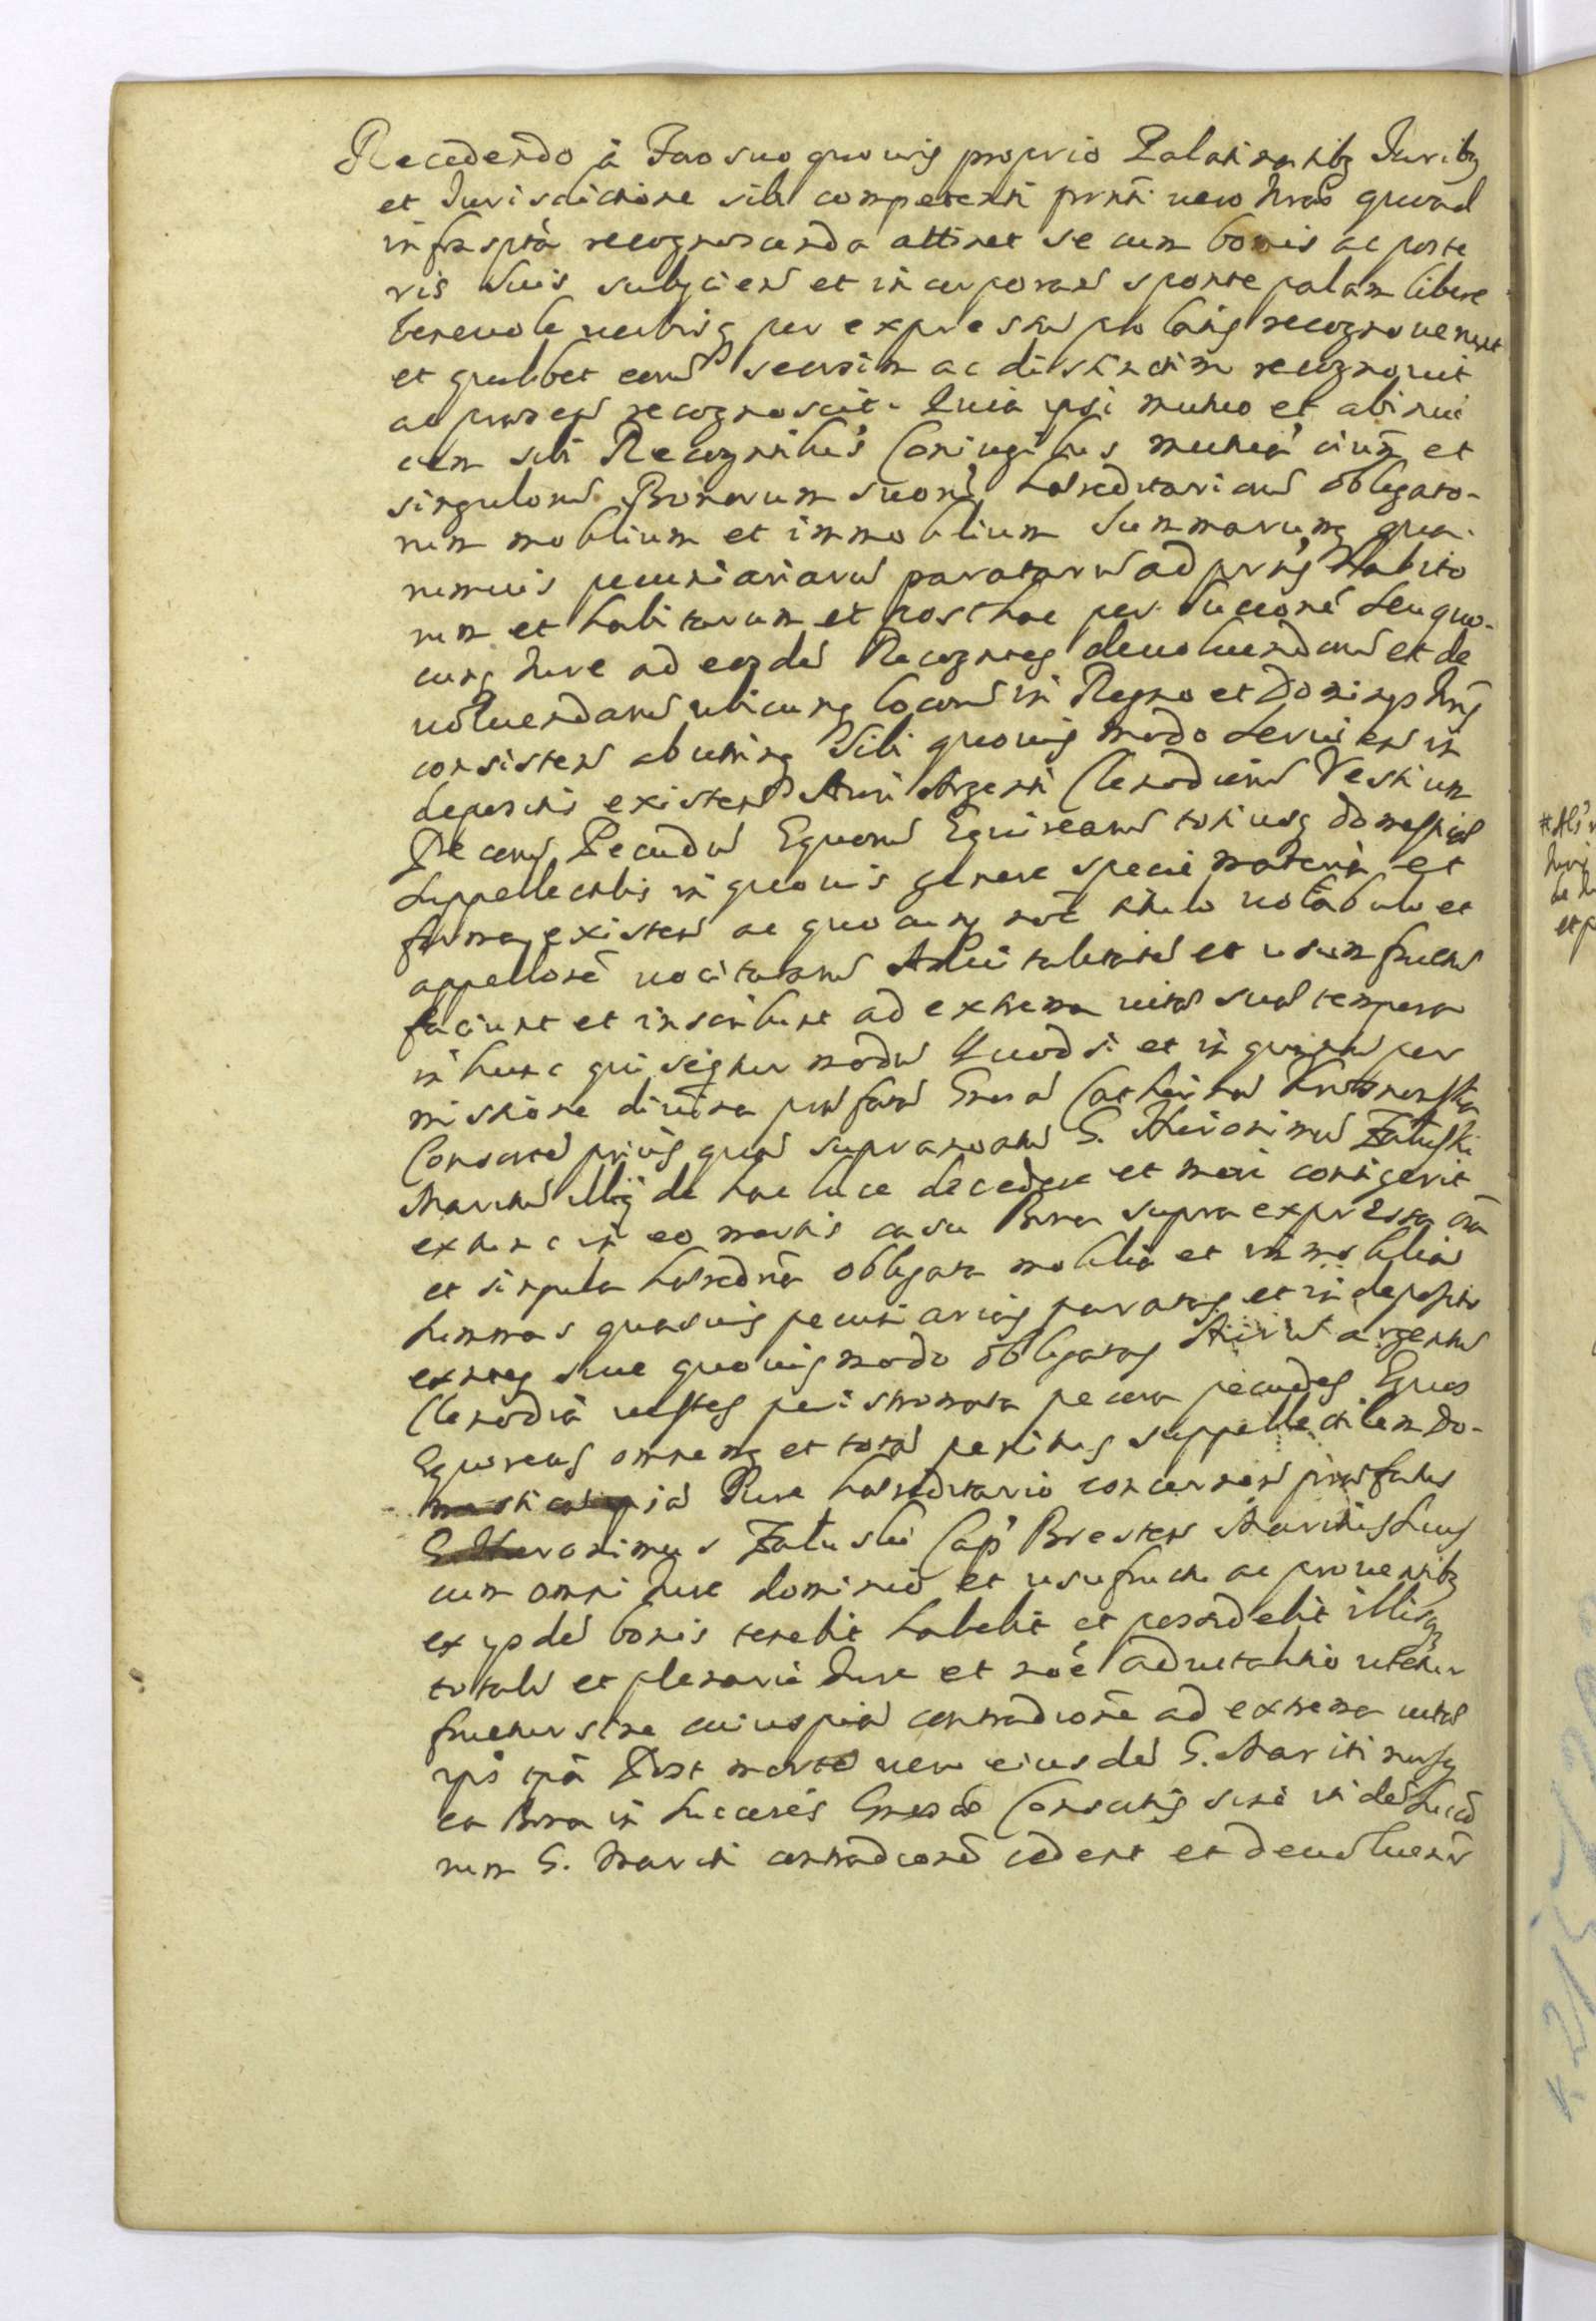 Recedendo à Foro suo quovis proprio Palatinatibz Juribz
et Jurisdictione sibi competenti prnti vero hrae quoad
infrascpta recognoscenda attinet se cum bonis ac poste
ris suis subjcien et incorporan sponte palam libere
benevole verbisq per expressu pro banis recognoverunt
et quilibet eorum seorsim ac distinctim recognovit
ac prasen recognoscit. Quia ipsi mutuo et abinvi
cem sibi Recognntibus Coniugibus mutua oium et
singulorum Bonorum suorum haereditariorum obligato-
rum mobilium et immobilium Summarumq qua-
rumvis pecuniariarum paratarum ad prns Habito
rum et habitarum et posthac per Succone seu quo-
cunq Jure ad eosdem Recognntes devolvendorum et de
volvendarum ubicunq locorum in Regno et Dominys hris
consisten ab utrinq sibi quovis modo servien in
depositis existen Auri Argenti Clenodiorum Vestium
Pecorum Pecudum Equorum Equirearum totiusq domesticae
suppellectilis in quovis genere specie materia et
forma existen ac quocunq noe titulo votabulo et
appellone vocitatarum Advitalitatem et usum fructum
faciunt et inscribunt ad extrema vitae suae tempora
in hunc qui seqtur modum Quod si et in quantum per
missione divina praefatam Gnosam Catherinam Krosnowska
Consortem prius quam supranoatum G. Hieronimum Załuski
Maritum illius de hac luce decedere et mori contigerit
extunc in eo mortis casu Bona supra expressa oia
et singula haereditaria obligata mobilia et immobilia
Summas quasvis pecuniarias paratas et in depositis
exntes sive quovis modo obligatas Aurum argentum
Clenodia vestes peristromata pecora pecudes Equos
Equireas omnemq et totam penitus suppellectilem do-
mesticam quia Jure haereditario concernen praefatus
G. Hieronimus Załuski Cap Bresten Maritus suus
cum omni Jure dominio et usufructu ac proventibz
ex ysdem bonis tenebit habebit et possidebit illisq
totali et plenario Jure et noe advitalitio utetur
fruetur sine cuiuspiam contradcione ad extrema vitae
ips tpa Post mortem vero eiusdem G. Mariti rursus
ea Bona in Succeres Gnosae Consortis sine itidem Succo
rum G. Mariti contradcione cedent et devolventur